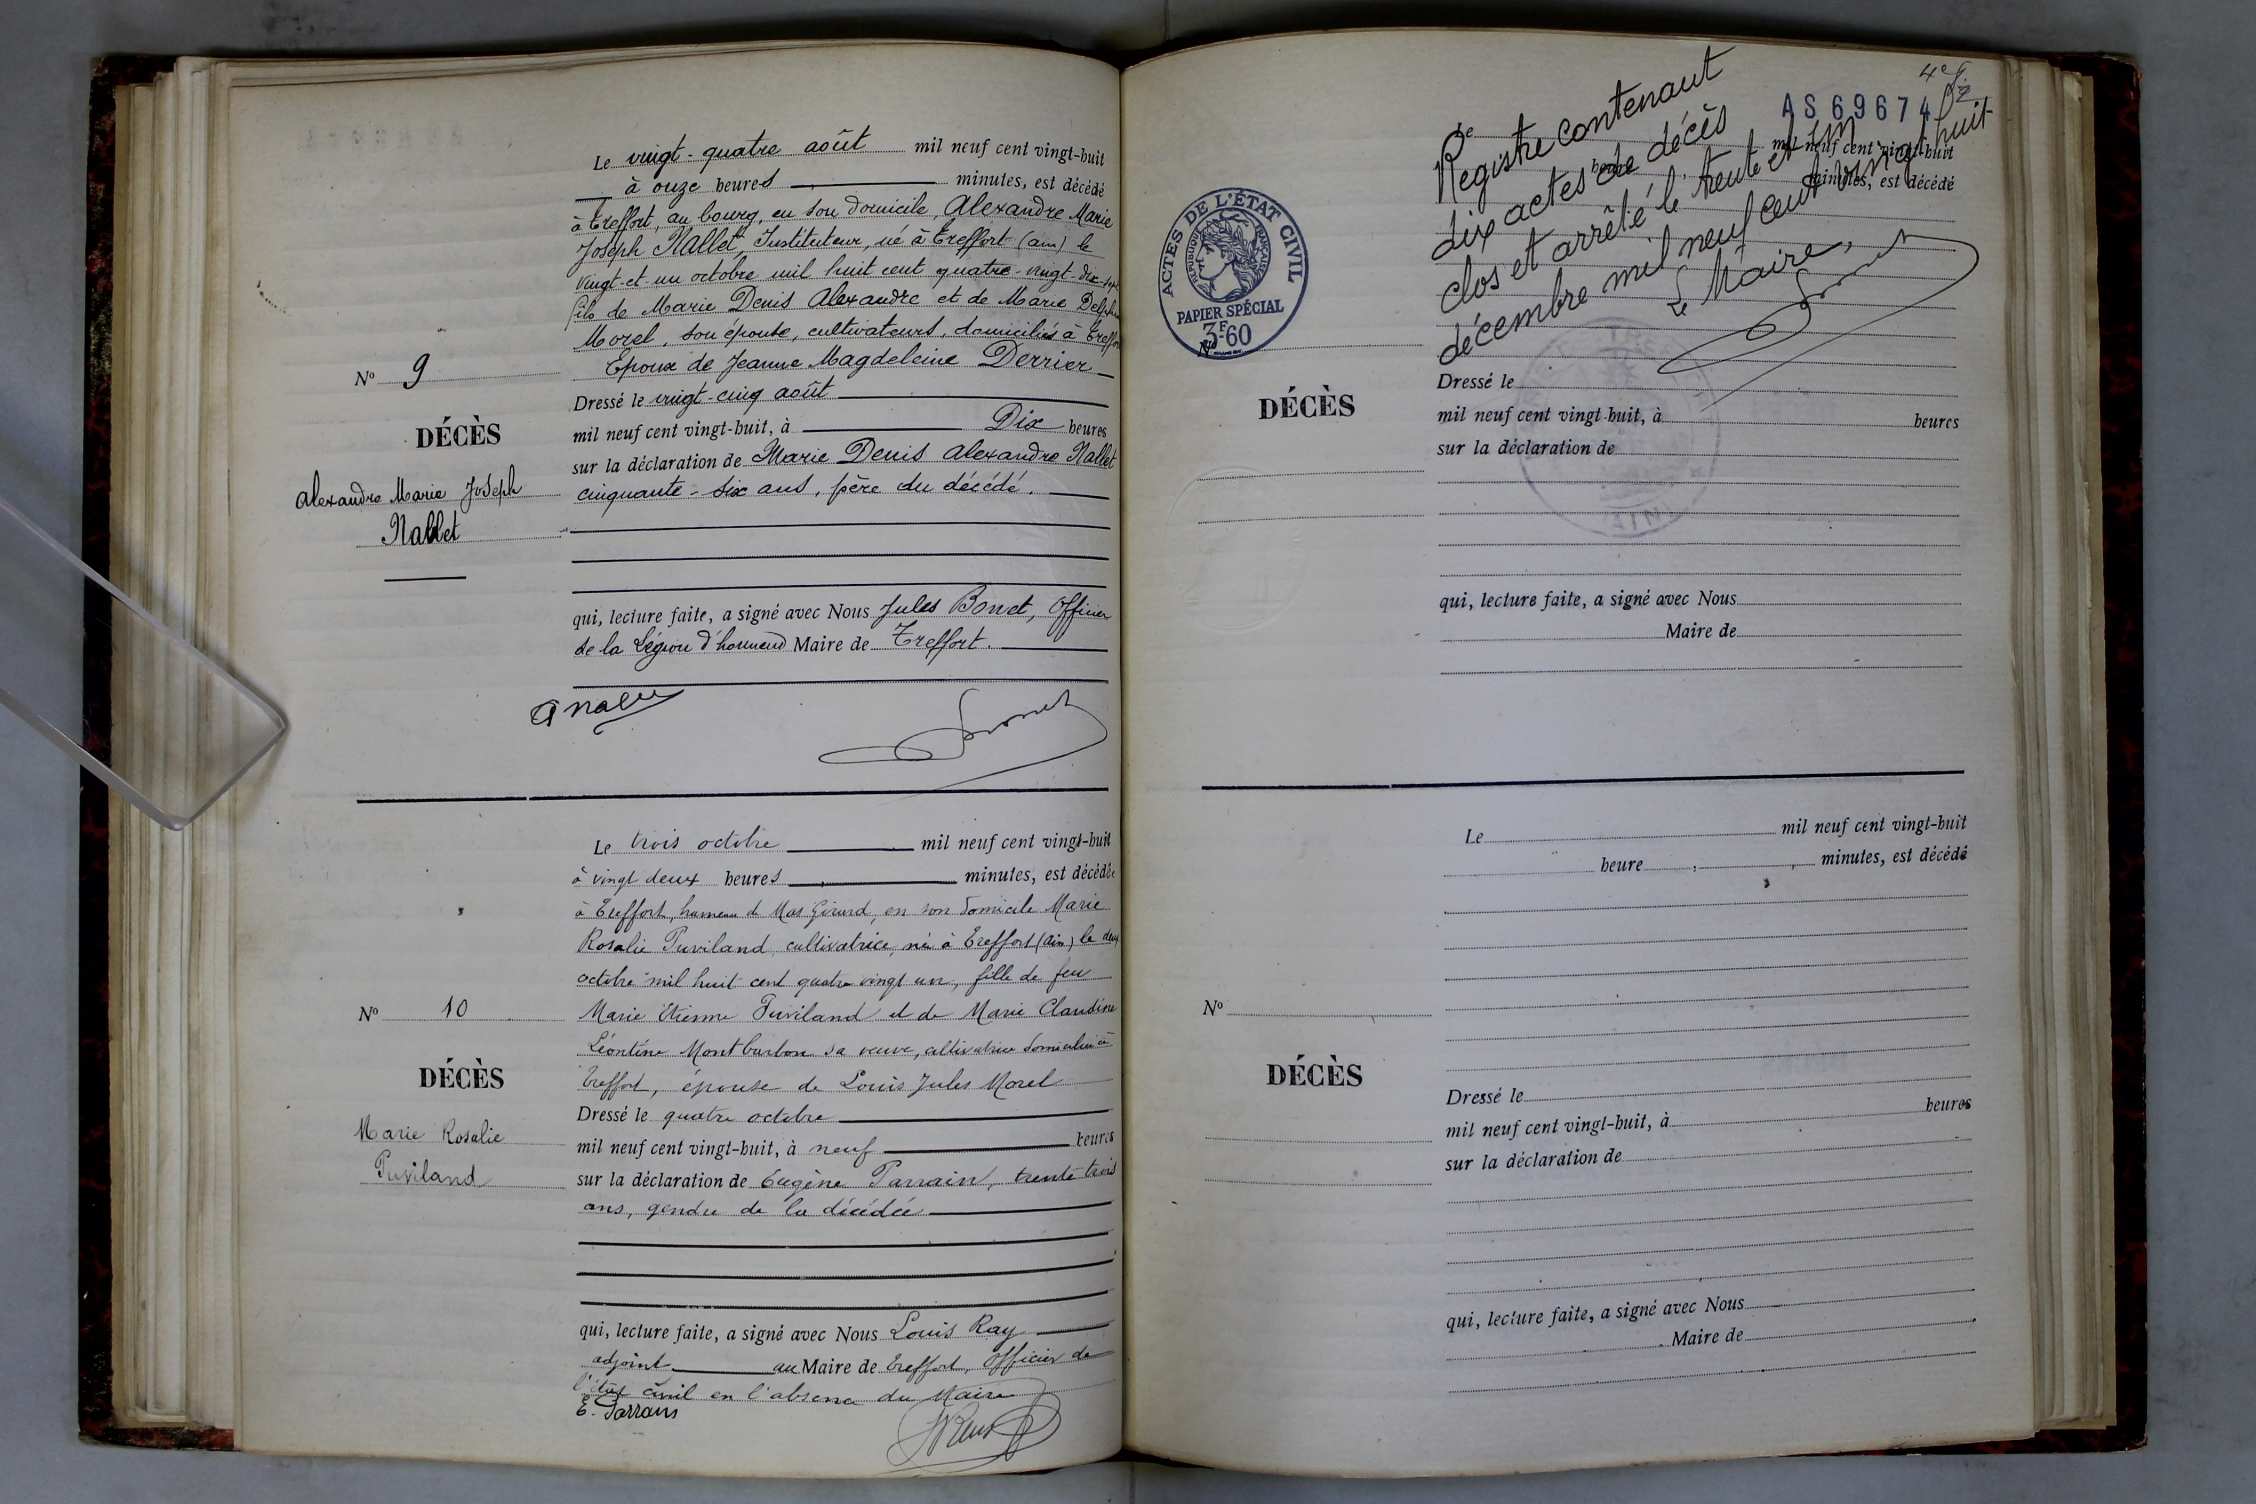 Le vingt-quatre août mil neuf cent vingt-huit
à onze heures minutes, est décédé
à Treffort, au bourg, en son domicile, Alexandre Marie
Joseph Nallet, Instituteur, né à Treffort (ain) le
vingt-et-un octobre mil huit cent quatre-vingt-dix-sept
fils de Marie Denis Alexandre et de Marie Delphine
Morel, son épouse, cultivateurs, domiciliés à Treffort
Epoux de Jeanne Magdeleine Derrier
Nº 9
DÉCÈS
Alexandre Marie Joseph
Nallet
Dressé le vingt-cinq août
mil neuf cent vingt-huit, à Dix heures
sur la déclaration de Marie Denis Alexandre Nallet
cinquante-six ans, père du décédé.
qui, lecture faite, a signé avec Nous Jules Bonet, Officier
de la Légion d'honneur Maire de Treffort.
Le trois octobre mil neuf cent vingt-huit
à vingt deux heures minutes, est décédée
à Treffort, hameau de Mas Girard, en son domicile Marie
Rosalie Puviland, cultivatrice, née à Treffort (Ain) le deux
octobre mil huit cent quatre vingt un, fille de feu
Marie Etienne Puviland et de Marie Claudine
Léontine Montbarbon sa veuve, cultivatrice domiciliée à
Treffort, épouse de Louis Jules Morel
Nº 10
DÉCÈS
Marie Rosalie
Puviland
Dressé le quatre octobre
mil neuf cent vingt-huit, à neuf heures
sur la déclaration de Eugène Parrain, trente trois
ans, gendre de la décédée
qui, lecture faite, a signé avec Nous Louis Ray
adjoint au Maire de Treffort, Officier de
l'état civil en l'absence du Maire
AS 69674
Registre contenant
dix actes de décès
clos et arrêté le trente et un
décembre mil neuf cent vingt huit
Le Maire,
Le mil neuf cent vingt-huit
heure minutes, est décédé
ACTES DE L'ÉTAT CIVIL
RÉPUBLIQUE FRANÇAISE
PAPIER SPÉCIAL
3F60
Nº
DÉCÈS
Dressé le
mil neuf cent vingt-huit, à heures
sur la déclaration de
qui, lecture faite, a signé avec Nous
Maire de
Le mil neuf cent vingt-huit
heure minutes, est décédé
Nº
DÉCÈS
Dressé le
mil neuf cent vingt-huit, à heures
sur la déclaration de
qui, lecture faite, a signé avec Nous
Maire de